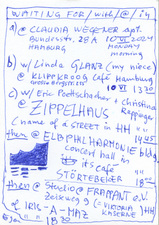 WAITING FOR/with/@/in
a) @ CLAUDIA WEGENER apt.
Bundesstr. 28 A 10 VI 2024
HAMBURG MONDAY
morning
b) w/ LINDA GLANZ (my niece)
@ KLIPPKROOG Café Hamburg
10 VI 1330
c) w/ Eric Poettschacher + Christina
@ ZIPPELHAUS Zeppinger
(name of a STREET in HH)
1645
then @ ELBPHILHARMONIE bldg.
concert hall in
its café
STÖRTEBEKER
18
then @ Studio @ FRAMANT e.V.
Zeiseweg 9 (= VIKTORIA KASERNE) HH
of IRIS-A-MAZ
1830